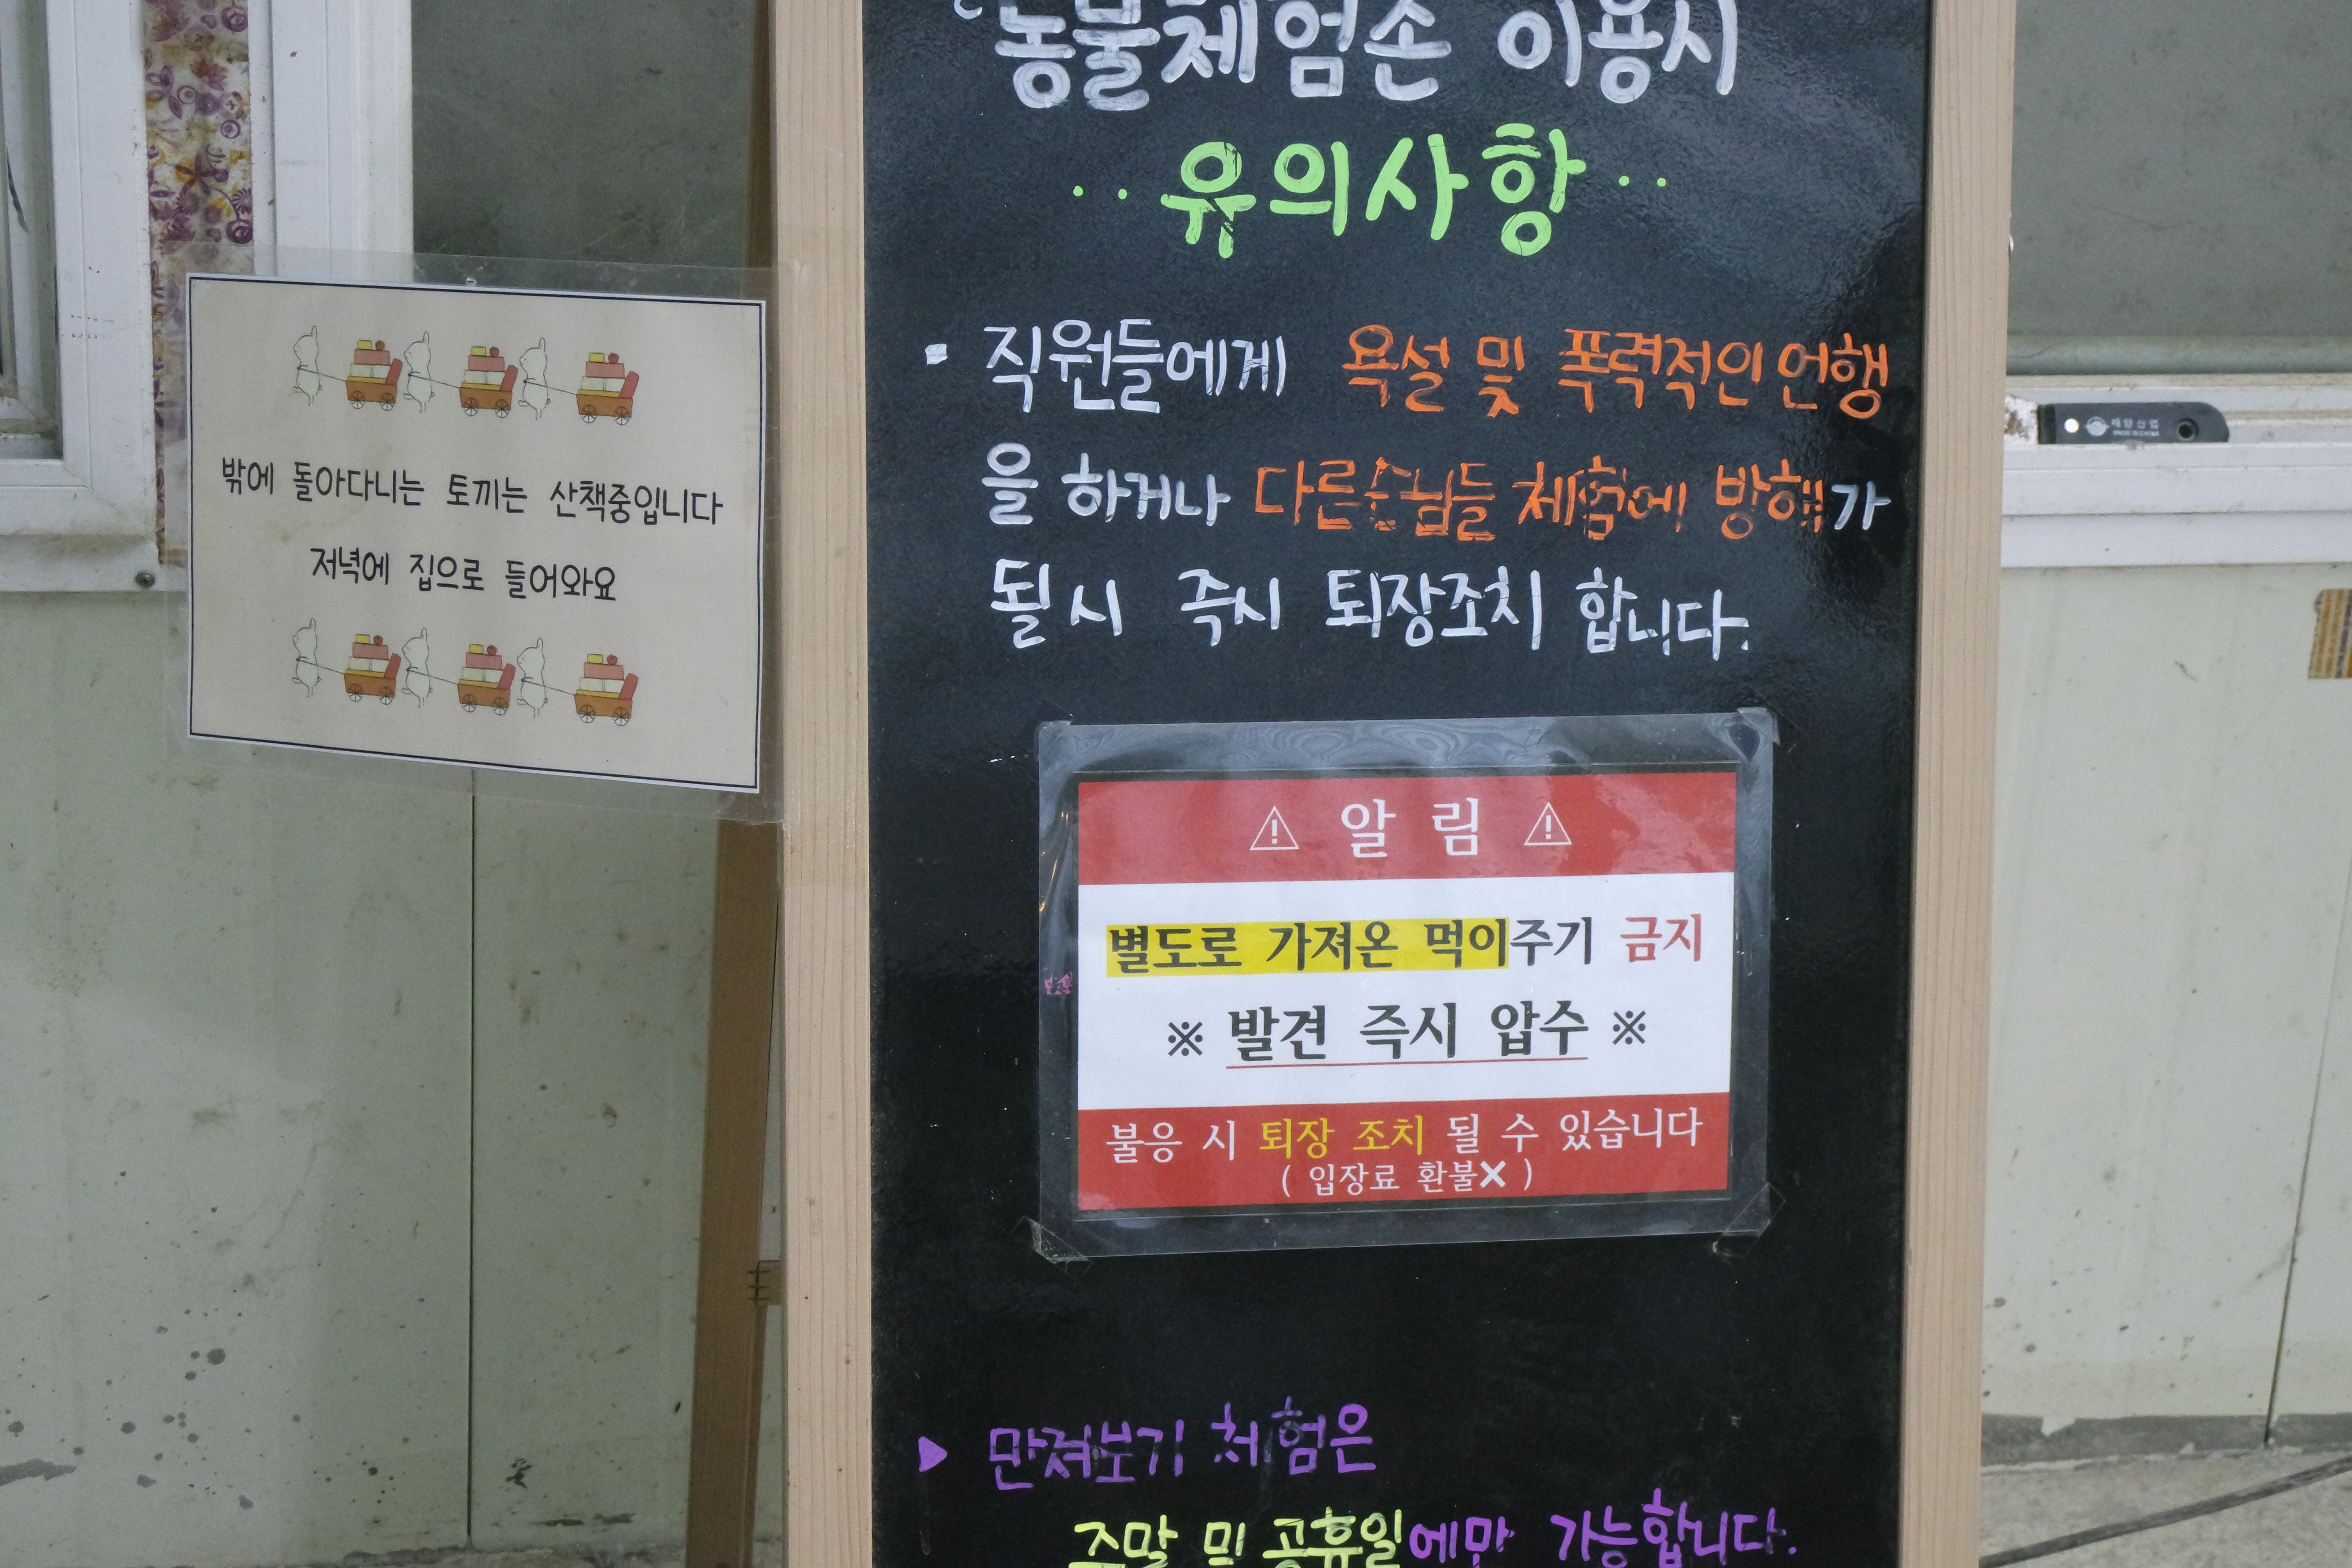 밖에 돌아다니는 토끼는 산책중입니다
저녁에 집으로 들어와요
동물체험존 이용시
유의사항
· 직원들에게 욕설 및 폭력적인 언행
을 하거나 다른손님들 체험에 방해가
될시 즉시 퇴장조치 합니다.
⚠ 알 림 ⚠
별도로 가져온 먹이주기 금지
※ 발견 즉시 압수 ※
불응 시 퇴장 조치 될 수 있습니다
( 입장료 환불X )
▶ 만져보기 체험은
주말 및 공휴일에만 가능합니다.
태양산업
MADE IN CHINA